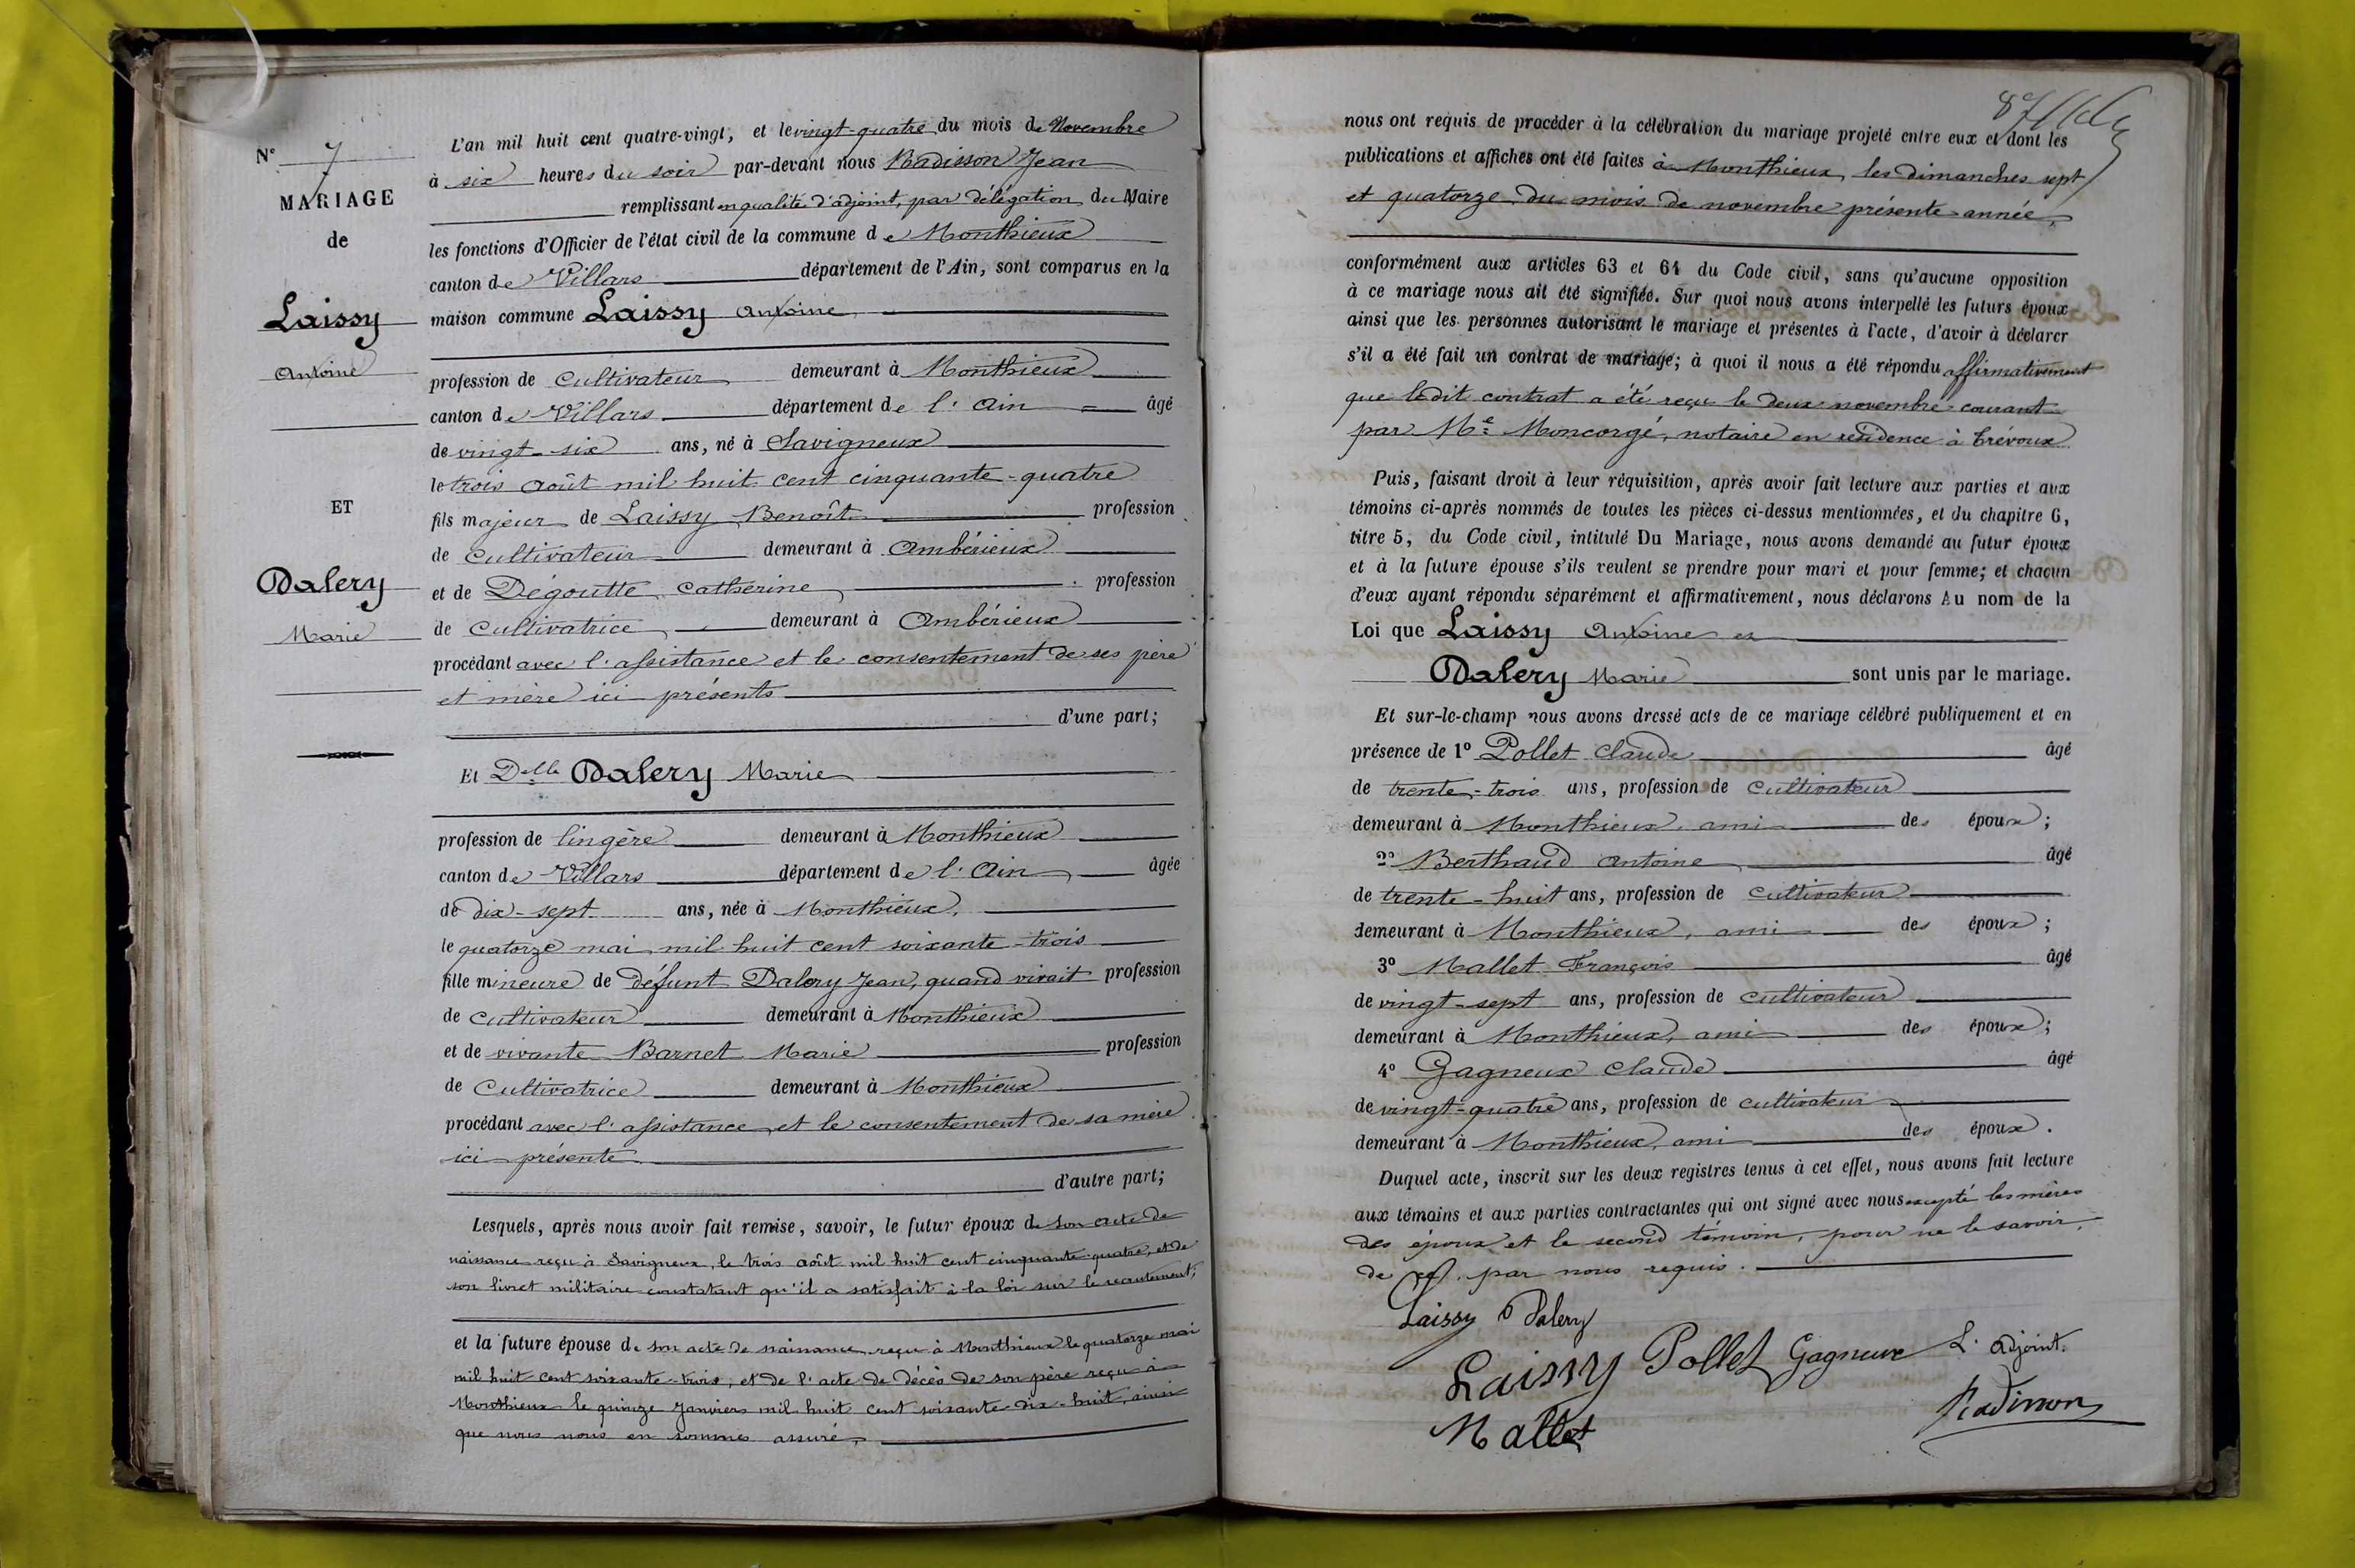 N° 7
MARIAGE
de
Laissy
Antoine
ET
Dalery
Marie
L'an mil huit cent quatre-vingt, et le vingt-quatre du mois de Novembre
à six heures du soir par-devant nous Radisson Jean
remplissant en qualité d'adjoint, par délégation du Maire
les fonctions d'Officier de l'état civil de la commune de Monthieux
canton de Villars département de l'Ain, sont comparus en la
maison commune Laissy Antoine
profession de cultivateur demeurant à Monthieux
canton de Villars département de l'Ain âgé
de vingt-six ans, né à Savigneux
le trois Août mil huit cent cinquante-quatre
fils majeur de Laissy Benoît profession
de cultivateur demeurant à Ambérieux
et de Dégoutte Catherine profession
de cultivatrice demeurant à Ambérieux
procédant avec l'assistance et le consentement de ses père
et mère ici présents
d'une part;
Et Delle Dalery Marie
profession de lingère demeurant à Monthieux
canton de Villars département de l'Ain âgée
de dix-sept ans, née à Monthieux,
le quatorze mai mil huit cent soixante-trois
fille mineure de défunt Dalery Jean, quand vivait profession
de cultivateur demeurant à Monthieux
et de vivante Barnet Marie profession
de cultivatrice demeurant à Monthieux
procédant avec l'assistance et le consentement de sa mère
ici présente
d'autre part;
Lesquels, après nous avoir fait remise, savoir, le futur époux de son acte de
naissance reçu à Savigneux, le trois août mil huit cent cinquante-quatre, et de
son livret militaire constatant qu'il a satisfait à la loi sur le recrutement;
et la future épouse de son acte de naissance reçu à Monthieux le quatorze mai
mil huit cent soixante-trois, et de l'acte de décès de son père reçu à
Monthieux le quinze Janvier mil huit cent soixante-dix-huit, ainsi
que nous nous en sommes assuré,
87
nous ont requis de procéder à la célébration du mariage projeté entre eux et dont les
publications et affiches ont été faites à Monthieux, les dimanches sept
et quatorze du mois de novembre présente année,
conformément aux articles 63 et 64 du Code civil, sans qu'aucune opposition
à ce mariage nous ait été signifiée. Sur quoi nous avons interpellé les futurs époux
ainsi que les personnes autorisant le mariage et présentes à l'acte, d'avoir à déclarer
s'il a été fait un contrat de mariage; à quoi il nous a été répondu affirmativement
que ledit contrat a été reçu le deux novembre courant
par Me Moncorgé, notaire en résidence à Trévoux
Puis, faisant droit à leur réquisition, après avoir fait lecture aux parties et aux
témoins ci-après nommés de toutes les pièces ci-dessus mentionnées, et du chapitre 6,
titre 5, du Code civil, intitulé Du Mariage, nous avons demandé au futur époux
et à la future épouse s'ils veulent se prendre pour mari et pour femme; et chacun
d'eux ayant répondu séparément et affirmativement, nous déclarons Au nom de la
Loi que Laissy Antoine et
Dalery Marie sont unis par le mariage.
Et sur-le-champ nous avons dressé acte de ce mariage célébré publiquement et en
présence de 1° Pollet Claude âgé
de trente-trois ans, profession de cultivateur
demeurant à Monthieux, ami des époux;
2° Berthaud Antoine âgé
de trente-huit ans, profession de cultivateur
demeurant à Monthieux, ami des époux;
3° Mallet François âgé
de vingt-sept ans, profession de cultivateur
demeurant à Monthieux, ami des époux;
4° Gagneux Claude âgé
de vingt-quatre ans, profession de cultivateur
demeurant à Monthieux, ami des époux.
Duquel acte, inscrit sur les deux registres tenus à cet effet, nous avons fait lecture
aux témoins et aux parties contractantes qui ont signé avec nous excepté les mères
des époux et le second témoin, pour ne le savoir,
de ce par nous requis.
Laissy Dalery
Laissy Pollet Gagneux L'adjoint.
Mallet Radisson